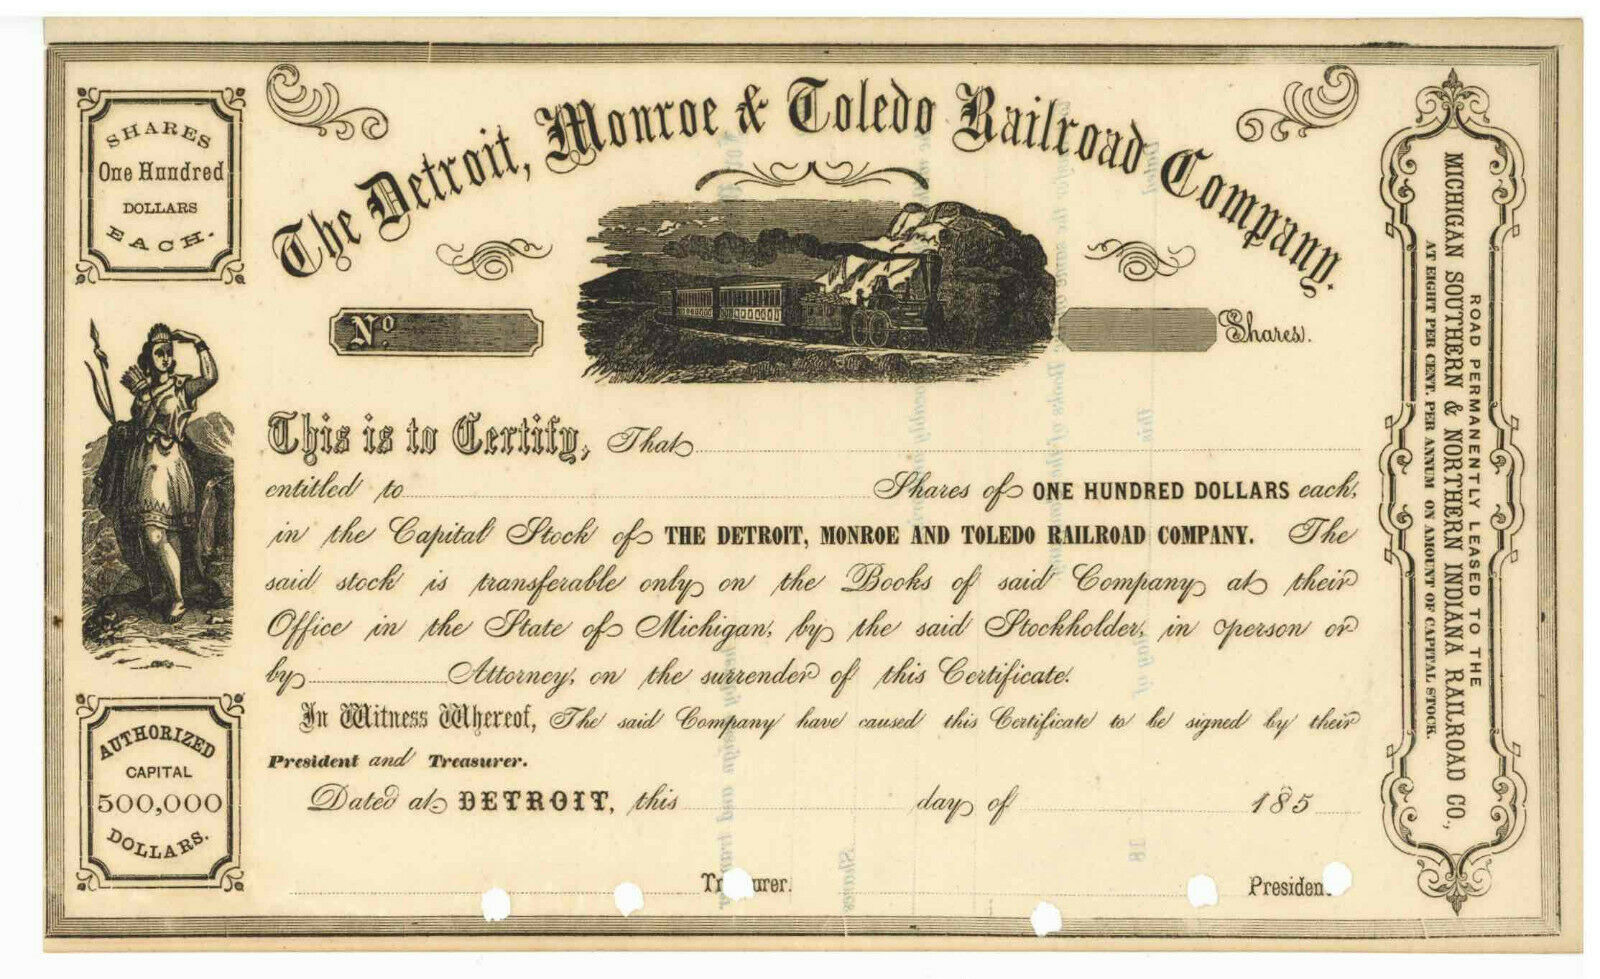 SHARES
One Hundred
DOLLARS
EACH.
The Detroit, Monroe & Toledo Railroad Company.
No.
Shares.
This is to Certify, That
entitled to Shares of ONE HUNDRED DOLLARS each,
in the Capital Stock of THE DETROIT, MONROE AND TOLEDO RAILROAD COMPANY. The
said stock is transferable only on the Books of said Company at their
Office in the State of Michigan, by the said Stockholder, in person or
by Attorney, on the surrender of this Certificate.
In Witness Whereof, The said Company have caused this Certificate to be signed by their
President and Treasurer.
Dated at DETROIT, this day of 185
Treasurer. President
AUTHORIZED
CAPITAL
500,000
DOLLARS.
ROAD PERMANENTLY LEASED TO THE
MICHIGAN SOUTHERN & NORTHERN INDIANA RAILROAD CO.,
AT EIGHT PER CENT. PER ANNUM ON AMOUNT OF CAPITAL STOCK.